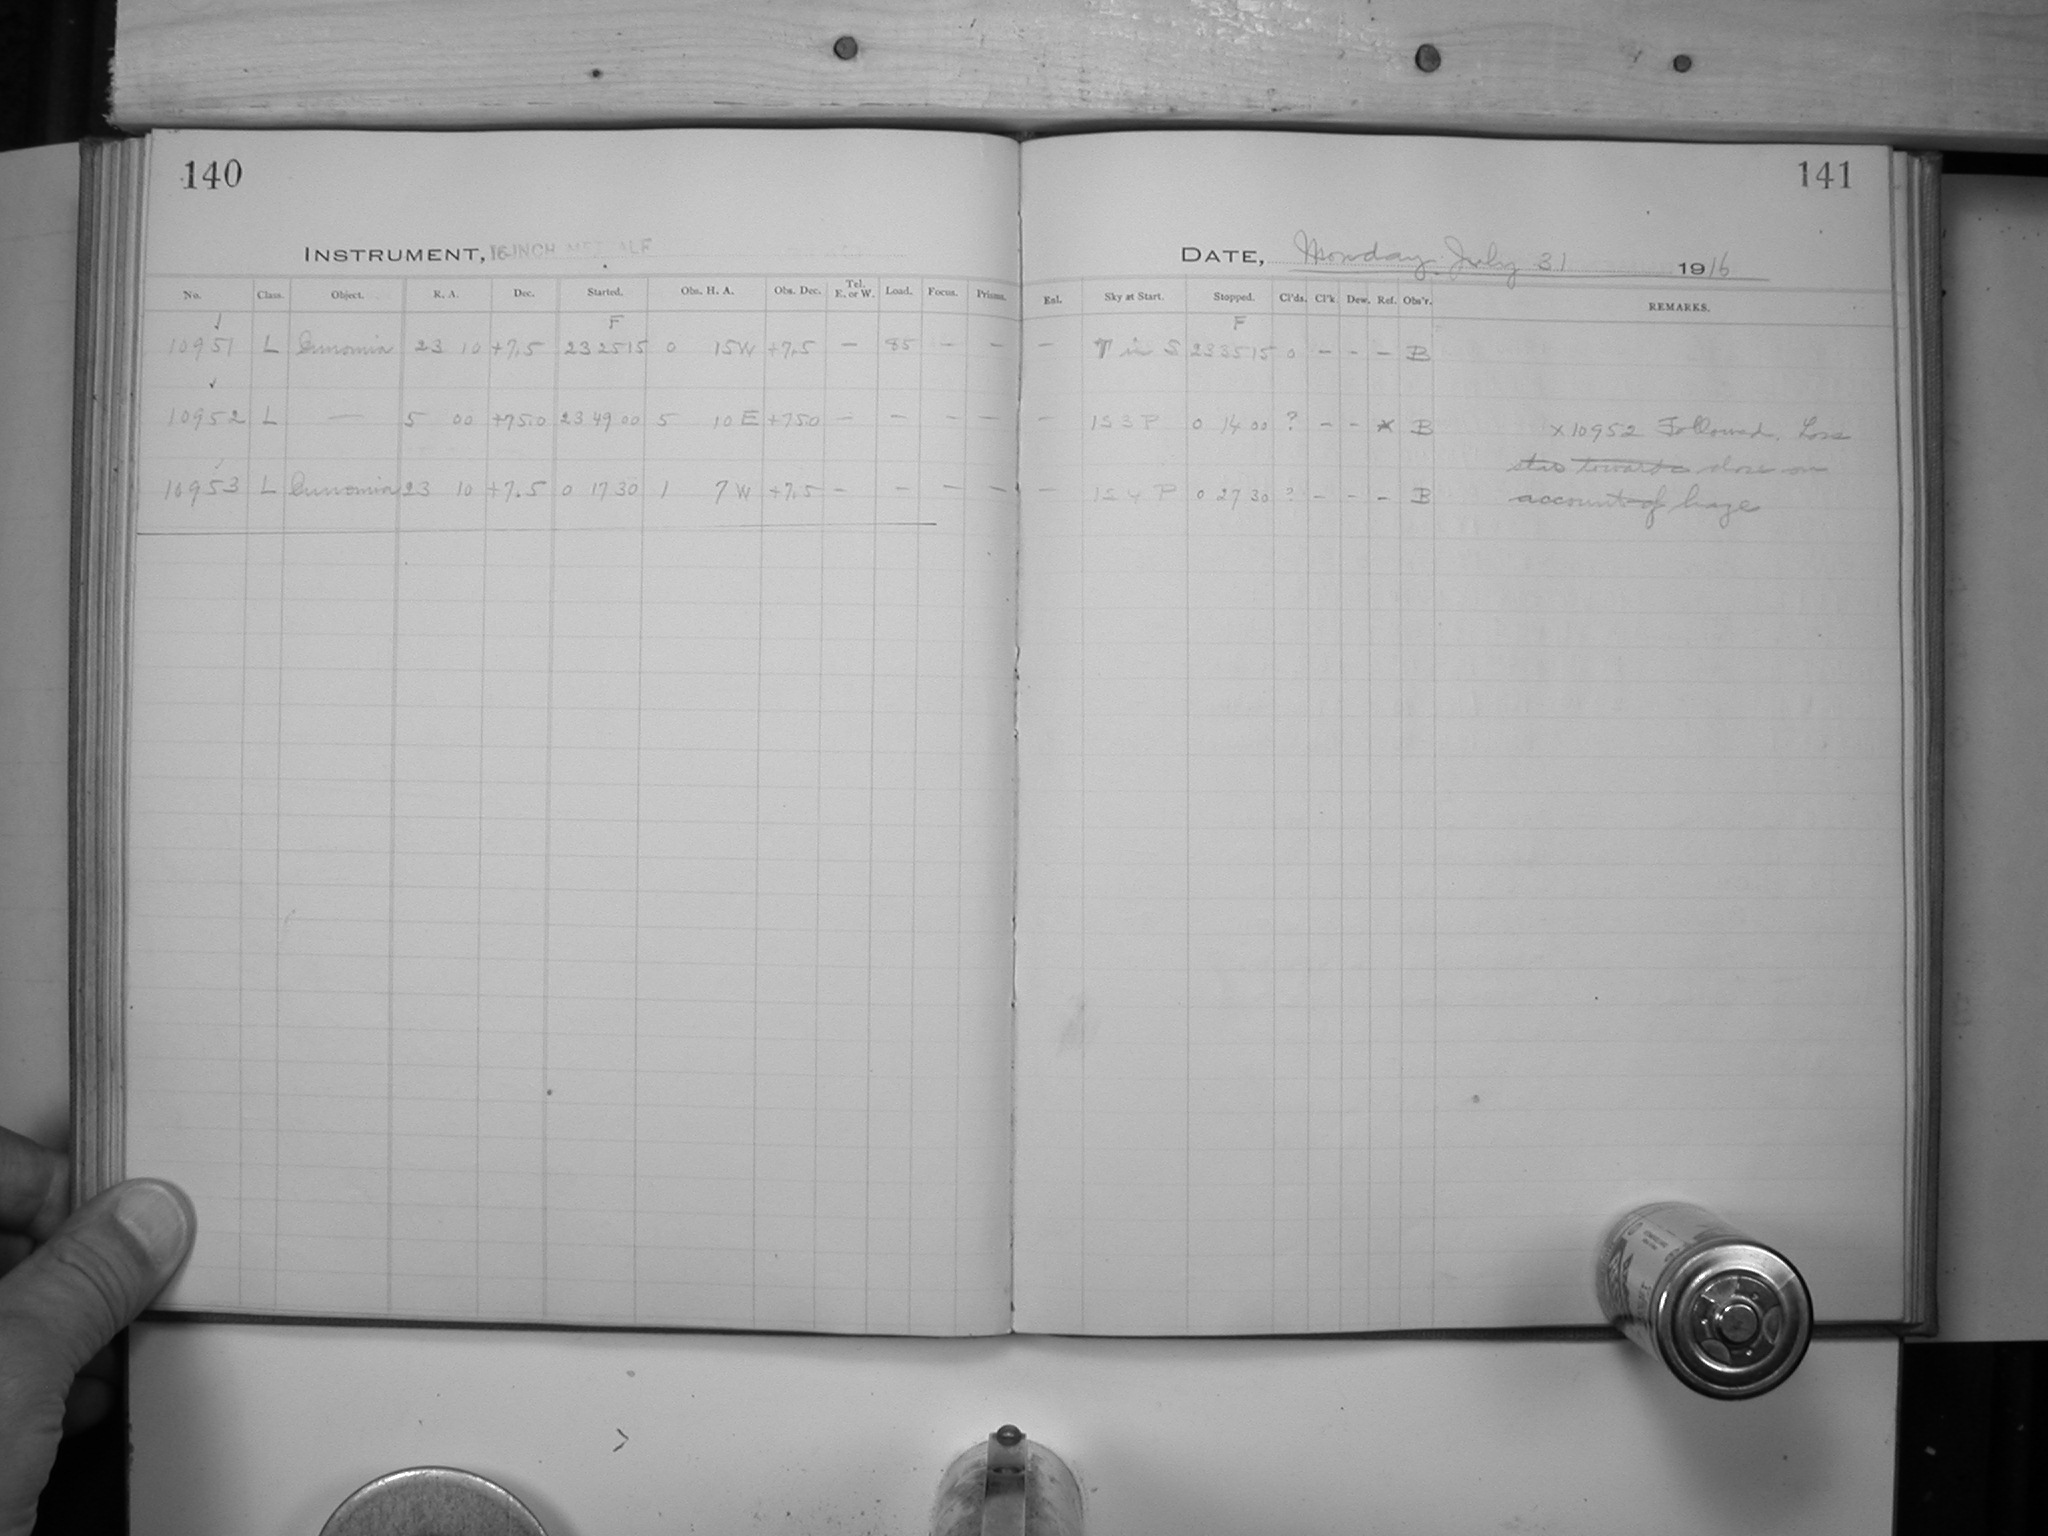 140
141
INSTRUMENT, 16-INCH METCALF
DATE, Monday July 31 1916
No. Class. Object. R. A. Dec. Started. Obs. H. A. Obs. Dec. Tel. E. or W. Load. Focus. Prisms. Enl. Sky at Start. Stopped. Cl'ds. Cl'k Dew. Ref. Obs'r. REMARKS.
F F
10951 L Eunomia 23 10 +7.5 23 25 15 0 15 W +7.5 — 85 — — — T in S 23 35 15 0 – – – B
10952 L — 5 00 +75.0 23 49 00 5 10 E +75.0 — — — — — 1S 3 P 0 14 00 ? – – x B x 10952 Followed. Lose
star towards close on
10953 L Eunomia 23 10 +7.5 0 17 30 1 7 W +7.5 — — — — — 1S 4 P 0 27 30 ? – – – B account of haze